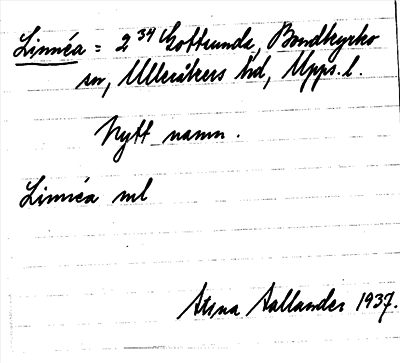 Linnéa = 2³⁴ Gottsunda, Bondkyrko
sn, Ulleråkers hd, Upps. l.
Nytt namn.
Linnéa ml
Stina Aallander 1937.